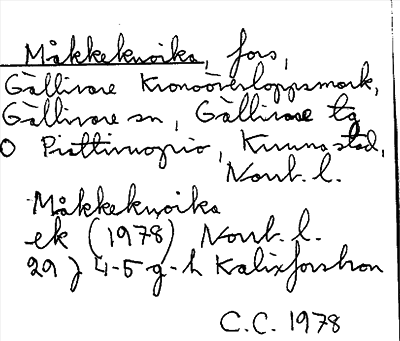 Måkkekuoika, fors,
Gällivare Kronoöverloppsmark,
Gällivare sn, Gällivare tg
o Piettivuopio, Kiruna stad,
Norrb. l.
Måkkekuoika
ek (1978) Norrb. l.
29 J 4-5 g-h Kalixforsbron
C.C. 1978